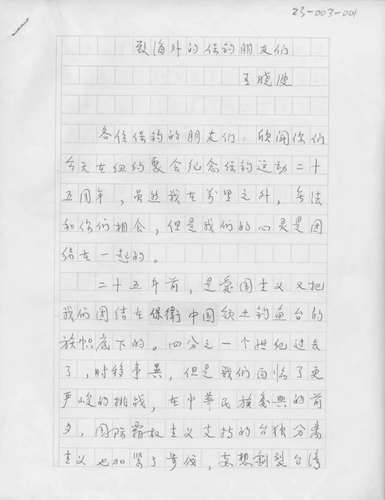 23-003-001
致海外的保钓朋友们
王晓波
各位保钓的朋友们，欣闻你们
今天在纽约聚会纪念保钓运动二十
五周年，虽然我在万里之外，无法
和你们相会，但是我们的心灵是团
结在一起的。
二十五年前，是爱国主义又把
我们团结在保衛中国领土钓鱼台的
旗帜底下的。四分之一个世纪过去
了，时移事異，但是我们面临了更
严峻的挑战，在中華民族复興的前
夕，国际霸权主义支持的台独分离
主义也加紧了号召，妄想割裂台湾